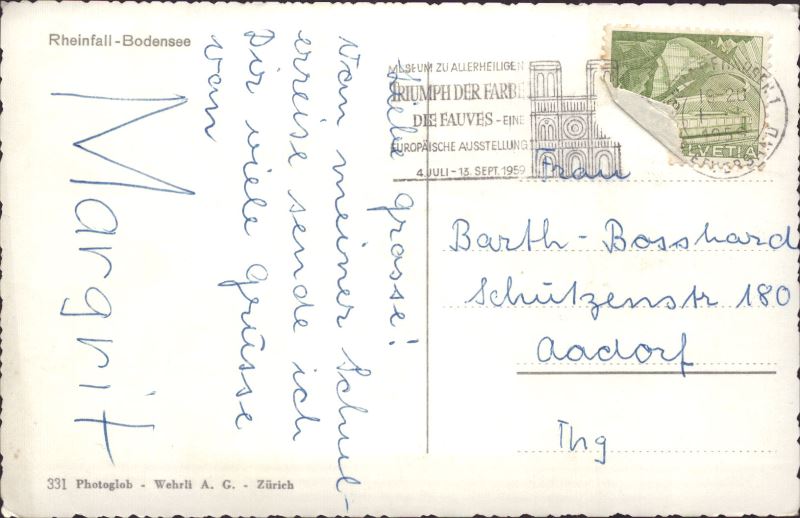 Rheinfall-Bodensee
Liebe grosse!
Von meiner Schul-
erreise sende ich
Dir viele Grüsse
von
Margrit
MUSEUM ZU ALLERHEILIGEN
TRIUMPH DER FARBE
DIE FAUVES - EINE
EUROPÄISCHE AUSSTELLUNG
4. JULI - 13. SEPT. 1959
HELVETIA
Frau
Barth-Bosshard
Schützenstr 180
Aadorf
Thg
331 Photoglob - Wehrli A. G. - Zürich